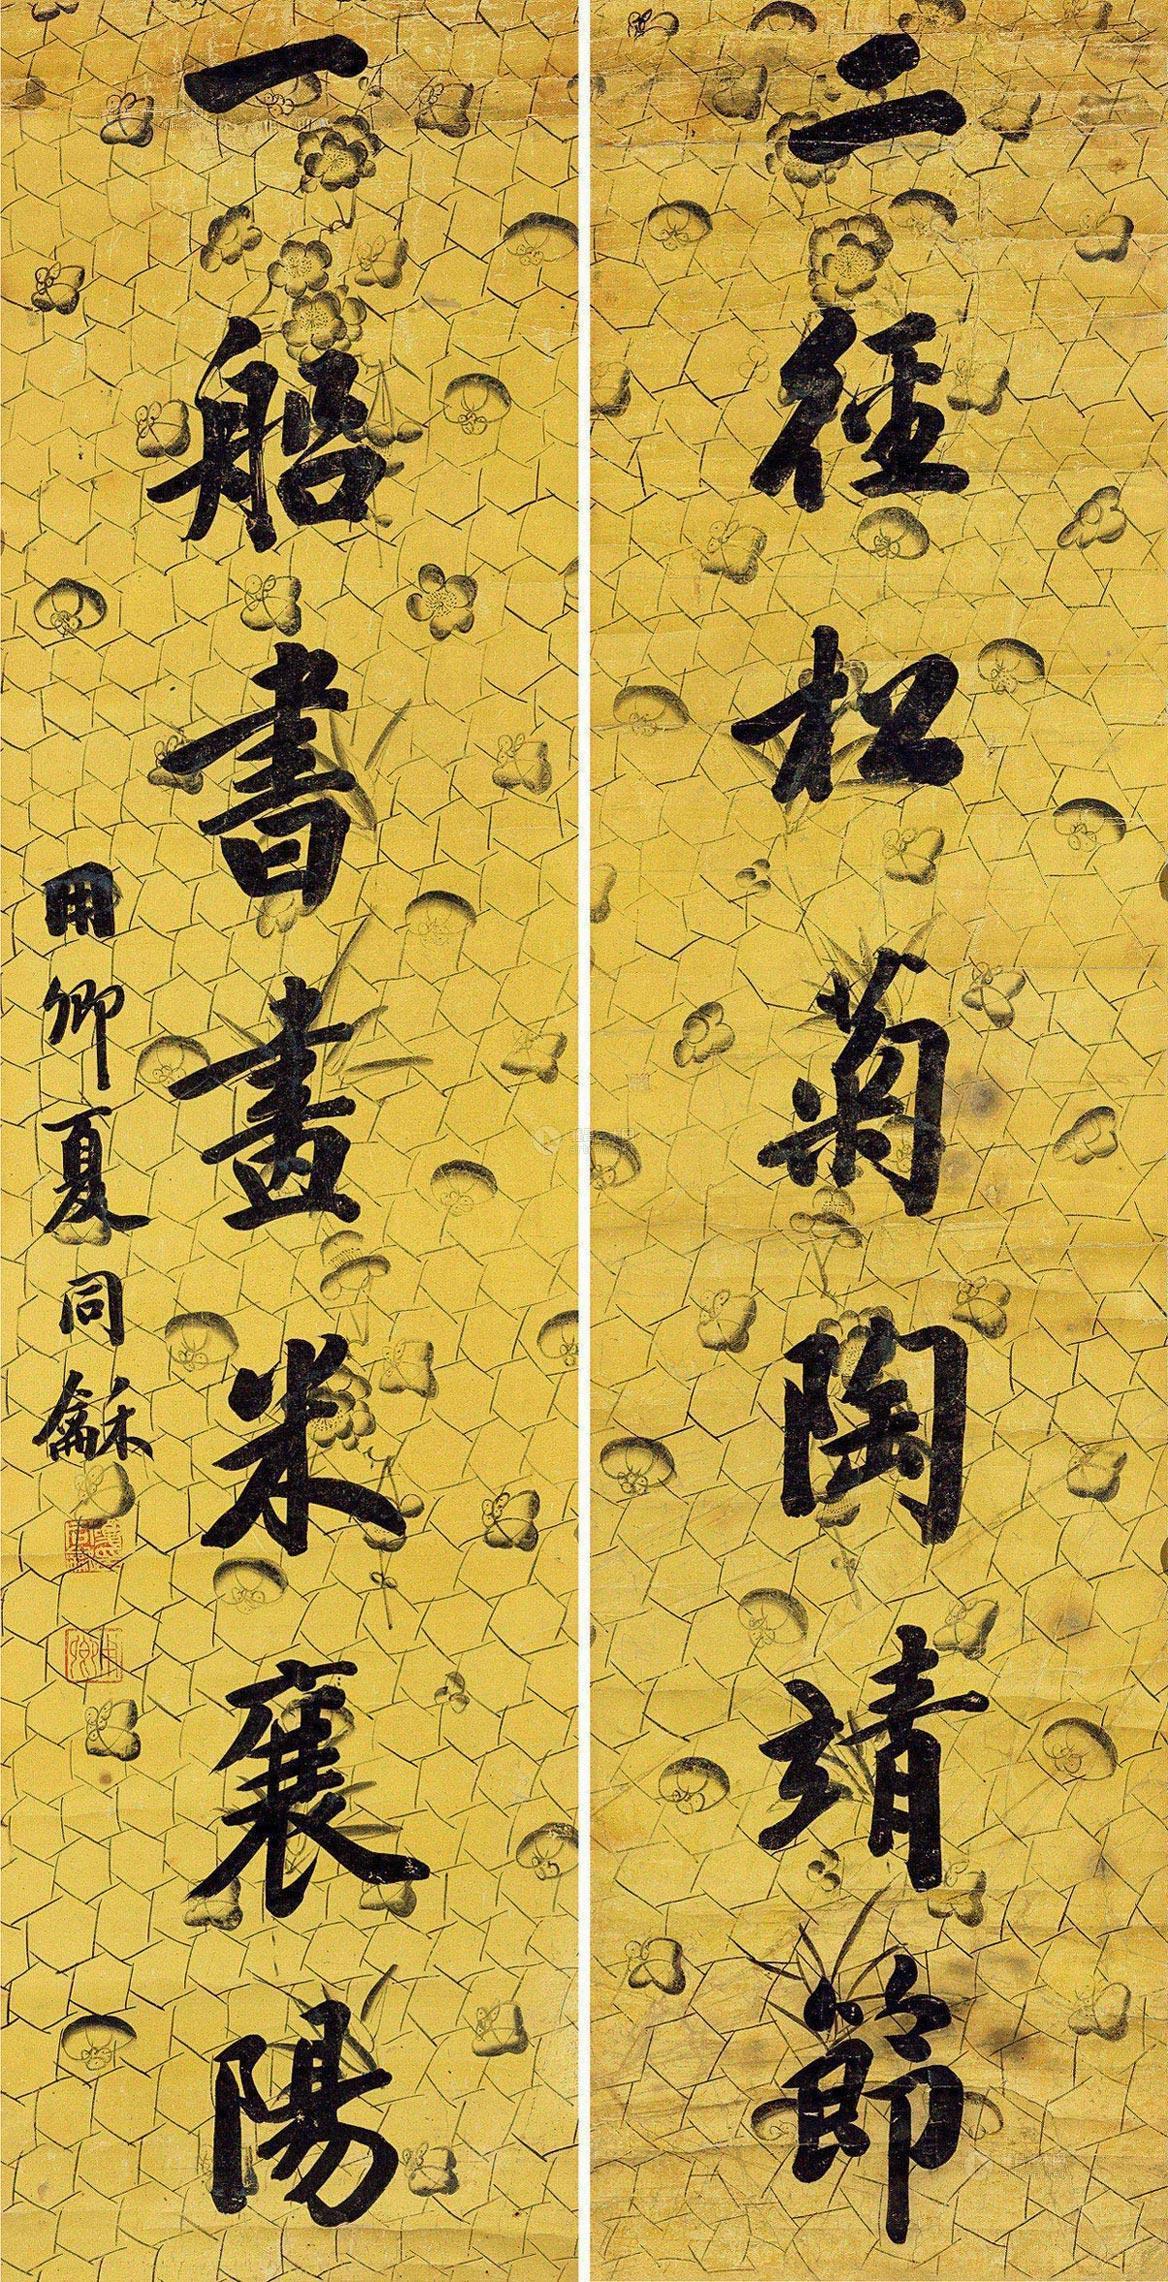 二徑松菊陶靖節
一船書畫米襄陽
用卿夏同龢